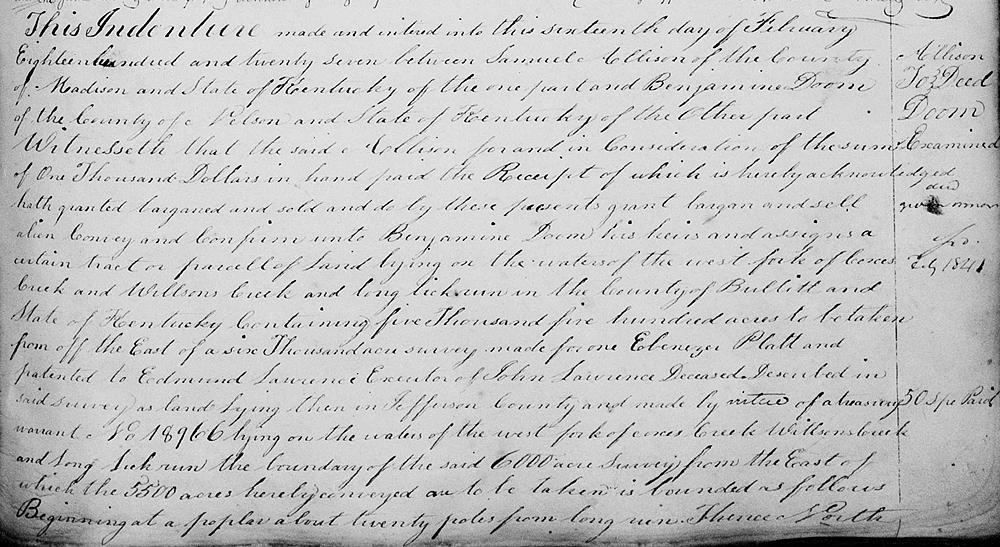 This Indenture made and intered into this sixteenth day of February
Eighteen hundred and twenty seven between Samuel Allison of the County
of Madison and State of Kentucky of the one part and Benjamine Doom
of the County of Nelson and State of Kentucky of the Other part
Witnesseth that the said Allison for and in Consideration of the sum
of One Thousand Dollars in hand paid the Receipt of which is hereby acknowledged
hath granted barganed and sold and do by these presents grant bargan and sell
alien Convey and Confirm unto Benjamine Doom his heirs and assigns a
certain tract or parcell of Land lying on the waters of the west fork of Coxes
Creek and Willsons Creek and long lick run in the County of Bullitt and
State of Kentucky Containing five Thousand five hundred acres to be taken
from off the East of a six Thousand acre survey made for one Ebenezer Platt and
patented to Eedmund Lawrence Executor of John Lawrence Deceased Described in
said survey as land Lying then in Jefferson County and made by virtue of a treasury
warrant No 18966 lying on the waters of the west fork of coxes Creek Willsons Creek
and Long Lick run the boundary of the said 6000 acre Survey from the East of
which the 5500 acres hereby conveyed are to be taken is bounded as follows
Beginning at a poplar about twenty poles from long run Thence North
Allison
To Deed
Doom
Examined
and
July 1841
50 Paid